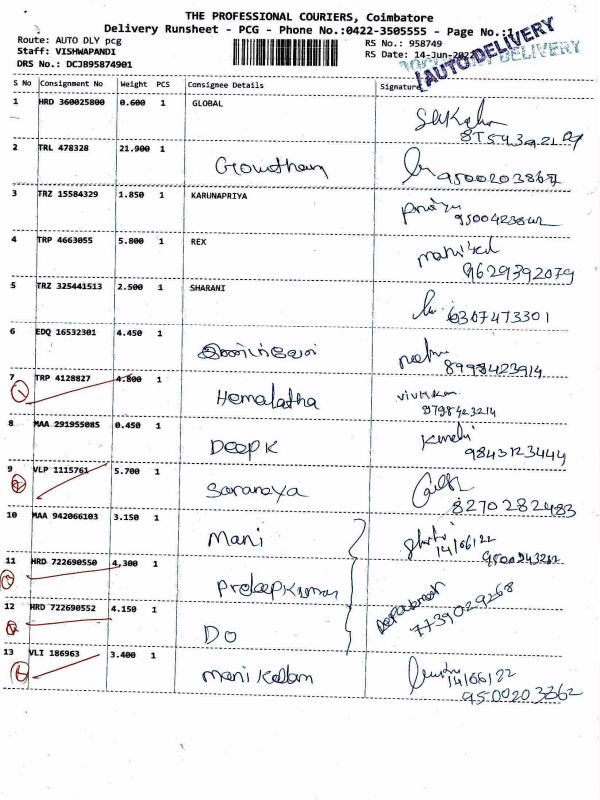 THE PROFESSIONAL COURIERS, Coimbatore
Delivery Runsheet - PCG - Phone No.:0422-3505555 - Page No.:1
Route: AUTO DLY pcg
RS No.: 958749
Staff: VISHWAPANDI
RS Date: 14-Jun-2022
DRS No.: DCJB95874901
AUTO DELIVERY
S No Consignment No Weight PCS Consignee Details Signature
1 HRD 360025800 0.600 1 GLOBAL
2 TRL 478328 21.900 1 Gowtham
9500203867
3 TRZ 15584329 1.850 1 KARUNAPRIYA
4 TRP 4663055 5.800 1 REX
9629392079
5 TRZ 325441513 2.500 1 SHARANI
6307473301
6 EDQ 16532301 4.450 1
8998423914
7 TRP 4128827 4.800 1 Hemalatha
8798423214
8 MAA 291955085 0.450 1 Deepk
9843123444
9 VLP 1115761 5.700 1 Saranaya
8270282483
10 MAA 942066103 3.150 1 Mani
14/06/22
11 HRD 722690550 4.300 1 PrdeepKumar
12 HRD 722690552 4.150 1 DO
7739029268
13 VLI 186963 3.400 1 Mani Kalam
14/06/22
9500203362